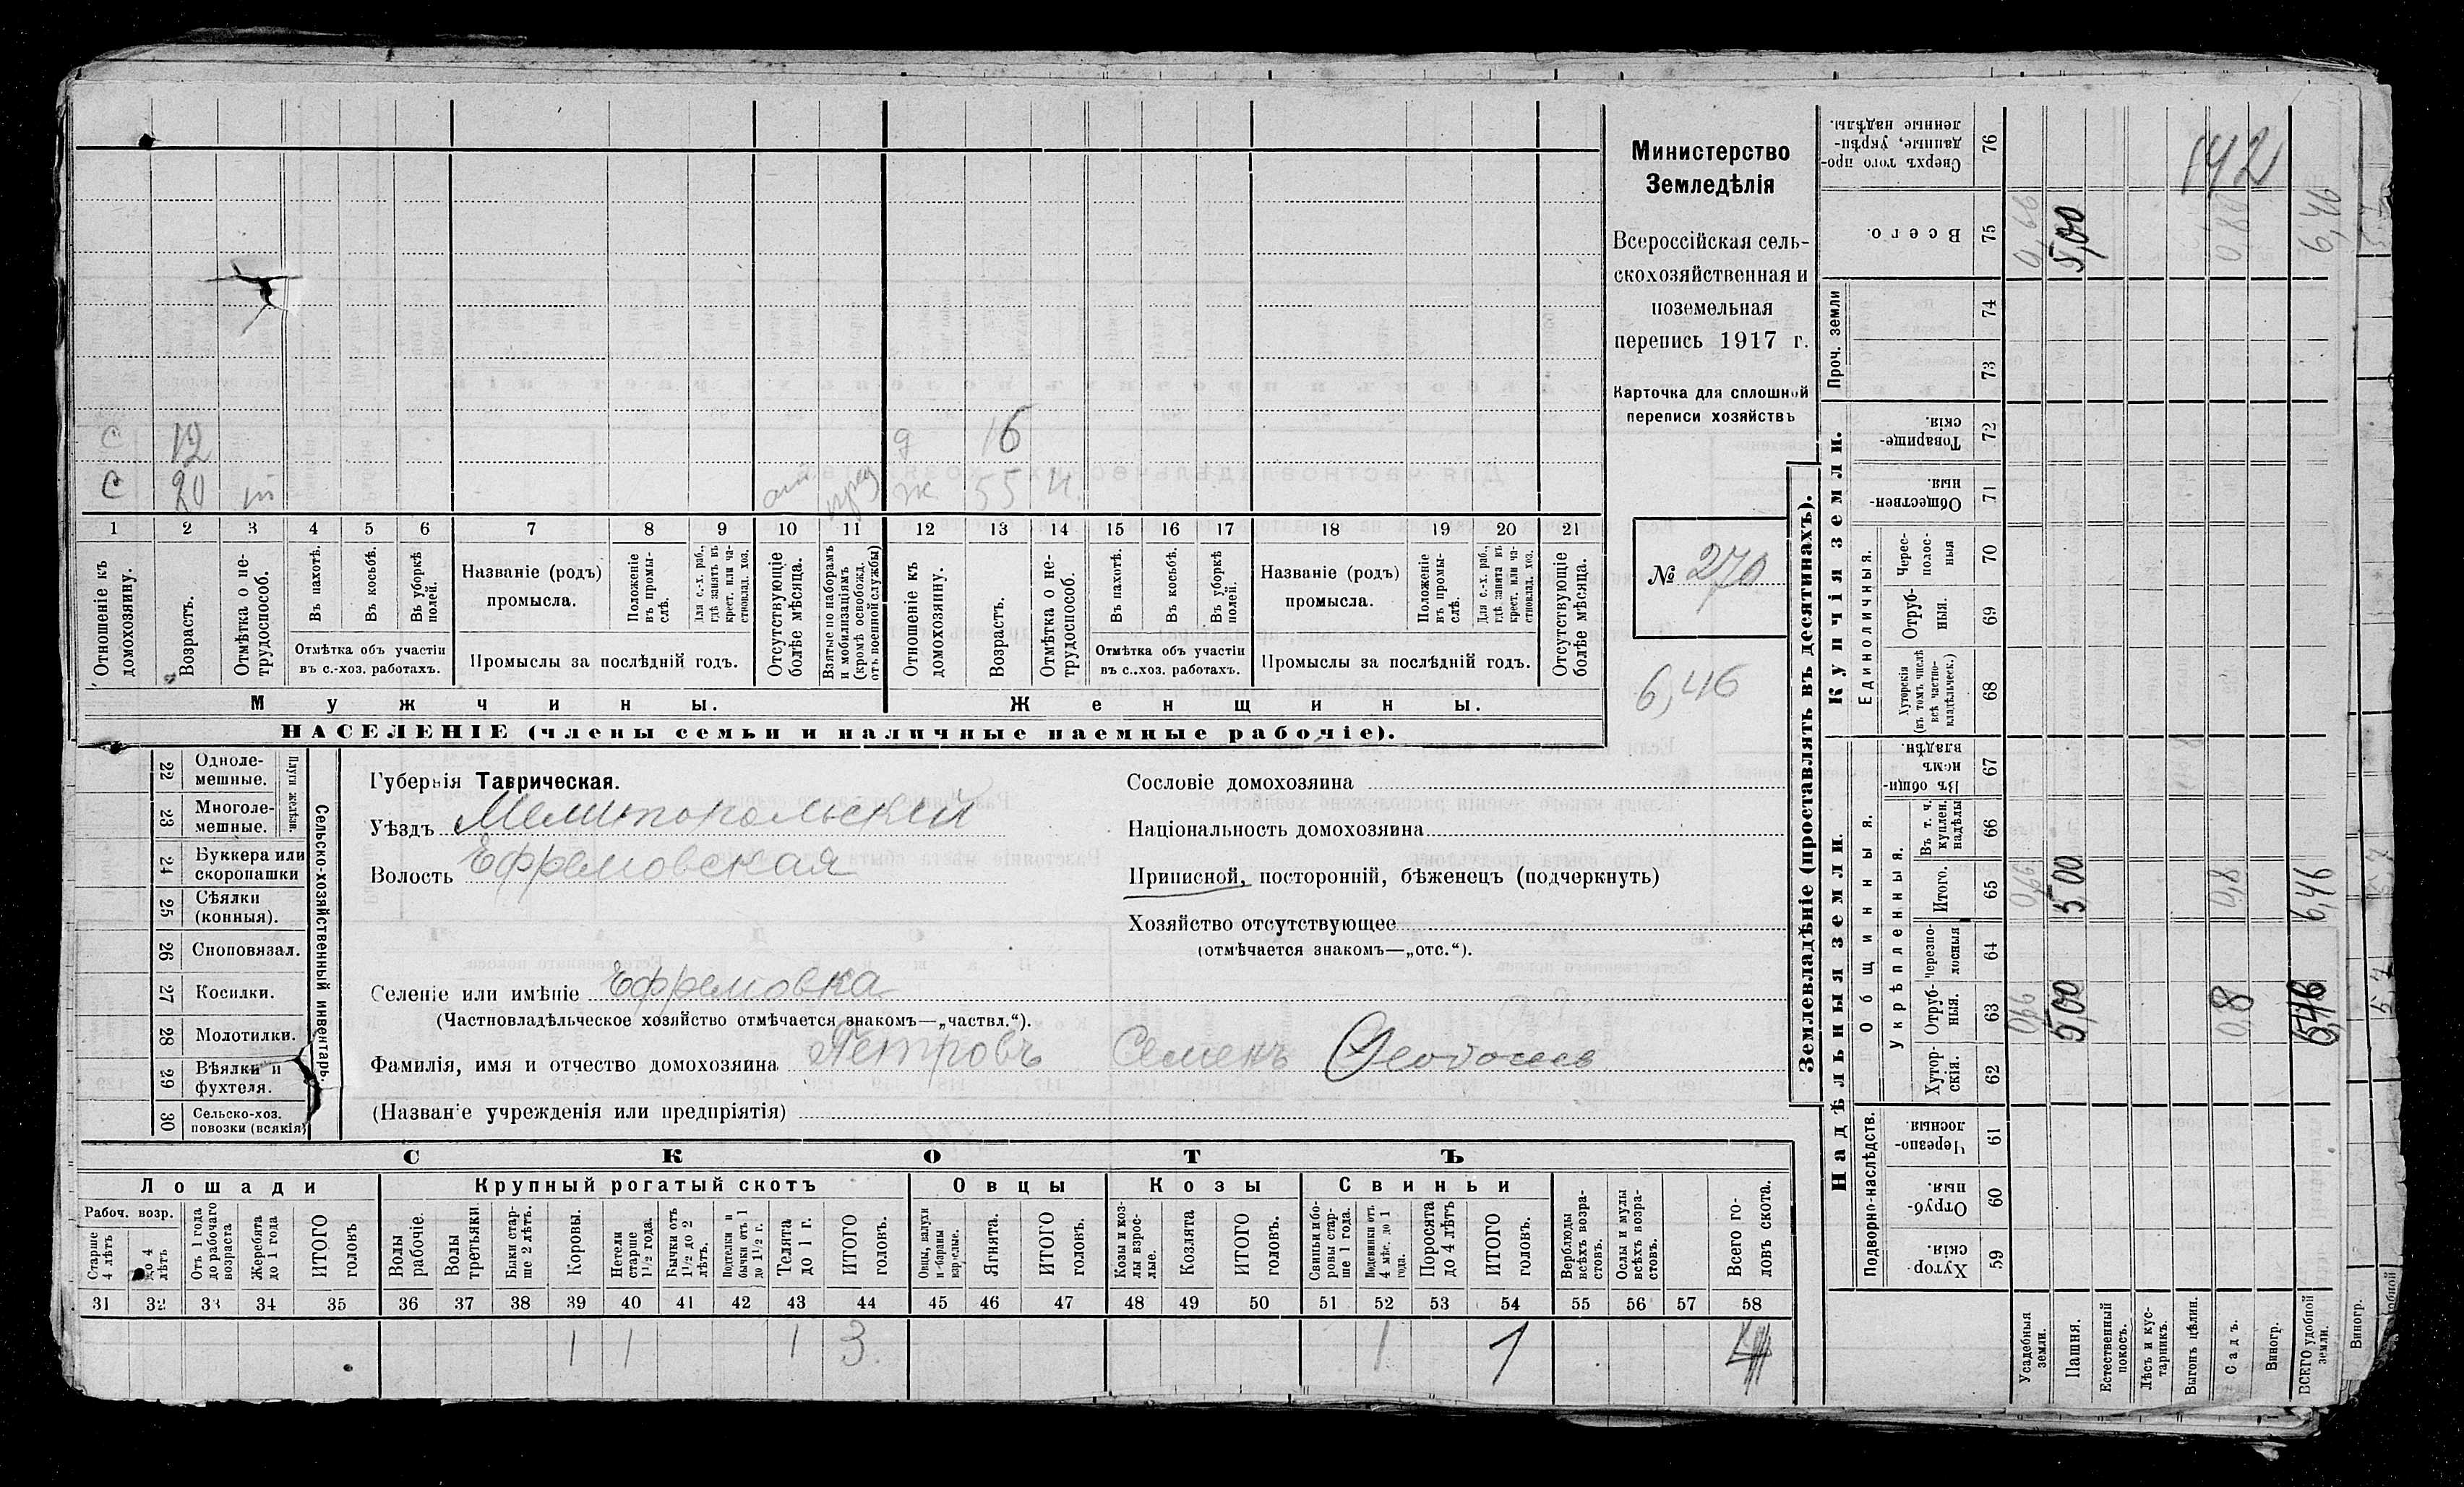 Министерство
Земледѣлія
Всероссійская сель-
скохозяйственная и
поземельная
перепись 1917 г.
Карточка для сплошной
переписи хозяйствъ
№ 270
6,46
С 12 д 16
С 20 ж 55 н.
1 2 3 4 5 6 7 8 9 10 11 12 13 14 15 16 17 18 19 20 21
Отношеніе къ домохозяину.
Возрастъ.
Отмѣтка о не-трудоспособ.
Въ пахотѣ.
Въ косьбѣ.
Въ уборкѣ полей.
Отмѣтка объ участіи
въ с.-хоз. работахъ.
Названіе (родъ)
промысла.
Положеніе въ промы-слѣ.
Для с.-х. раб., гдѣ занятъ въ крест. или ча-стновлад. хоз.
Промыслы за послѣдній годъ.
Отсутствующіе болѣе мѣсяца.
Взятые по наборамъ и мобилизаціямъ (кромѣ освобожд. отъ военной службы)
Отношеніе къ домохозяину.
Возрастъ.
Отмѣтка о не-трудоспособ.
Въ пахотѣ.
Въ косьбѣ.
Въ уборкѣ полей.
Отмѣтка объ участіи
въ с.-хоз. работахъ.
Названіе (родъ)
промысла.
Положеніе въ промы-слѣ.
Для с.-х. раб., гдѣ занята въ крест. или ча-стновлад. хоз.
Промыслы за послѣдній годъ.
Отсутствующіе болѣе мѣсяца.
Мужчины. Женщины.
НАСЕЛЕНІЕ (члены семьи и наличные наемные рабочіе).
22 Одноле-мешные.
23 Многоле-мешные.
Плуги желѣзн.
24 Буккера или скоропашки
25 Сѣялки (конныя).
26 Сноповязал.
27 Косилки.
28 Молотилки.
29 Вѣялки и фухтеля.
30 Сельско-хоз. повозки (всякія)
Сельско-хозяйственный инвентарь.
Губернія Таврическая.
Уѣздъ Мелитопольскій
Волость Ефремовская
Сословіе домохозяина
Національность домохозяина
Приписной, посторонній, бѣженецъ (подчеркнуть)
Хозяйство отсутствующее
(отмѣчается знакомъ—„отс.“).
Селеніе или имѣніе Ефремовка
(Частновладѣльческое хозяйство отмѣчается знакомъ—„частвл.“).
Фамилія, имя и отчество домохозяина Петровъ Семенъ
(Названіе учрежденія или предпріятія)
СКОТЪ
Лошади Крупный рогатый скотъ Овцы Козы Свиньи
Рабоч. возр.
Старше 4 лѣтъ
до 4 лѣтъ
Отъ 1 года до рабочаго возраста
Жеребята до 1 года
ИТОГО головъ
Волы рабочіе.
Волы третьяки.
Быки стар-ше 2 лѣтъ.
Коровы.
Нетели старше 1½ года.
Бычки отъ 1½ до 2 лѣтъ.
Подтелки и бычки отъ 1 до 1½ г.
Телята до 1 г.
ИТОГО головъ.
Овцы, валухи и бараны взрослые.
Ягнята.
ИТОГО головъ.
Козы и коз-лы взрос-лые.
Козлята
ИТОГО головъ.
Свиньи и бо-ровы стар-ше 1 года.
Подсвинки отъ 4 мѣс. до 1 года.
Поросята до 4 лѣтъ
ИТОГО головъ.
Верблюды всѣхъ возра-стовъ.
Ослы и мулы всѣхъ возра-стовъ.
Всего го-ловъ скота.
31 32 33 34 35 36 37 38 39 40 41 42 43 44 45 46 47 48 49 50 51 52 53 54 55 56 57 58
1 1 1 3 1 1 4
Землевладѣніе (проставлять въ десятинахъ).
Надѣльныя земли. Купчія земли. Проч. земли
Подворно-наслѣдств. Общинныя. Укрѣпленныя. Единоличныя.
59 Хутор-скія.
60 Отруб-ныя.
61 Черезпо-лосныя.
62 Хутор-скія.
63 Отруб-ныя.
64 Черезпо-лосныя
65 Итого.
66 Въ т. ч. куплен. надѣлы
67 Въ общи-номъ владѣн.
68 Хуторскія (въ томъ числѣ всѣ частно-владѣльческ.)
69 Отруб-ныя.
70 Черес-полос-ныя
71 Обществен-ныя.
72 Товарище-скія.
73
74
75 Всего.
76 Сверхъ того про-данные, укрѣп-ленные надѣлы.
Усадебныя земли. 0,66 0,66 0,66
Пашня. 5,00 5,00 5,00
Естественный покосъ.
Лѣсъ и кус-тарникъ.
Выгонъ цѣлин.
Садъ. 0,8 0,8 0,80
Виногр.
ВСЕГО удобной земли. 6,46 6,46 6,46
142
Виногр.